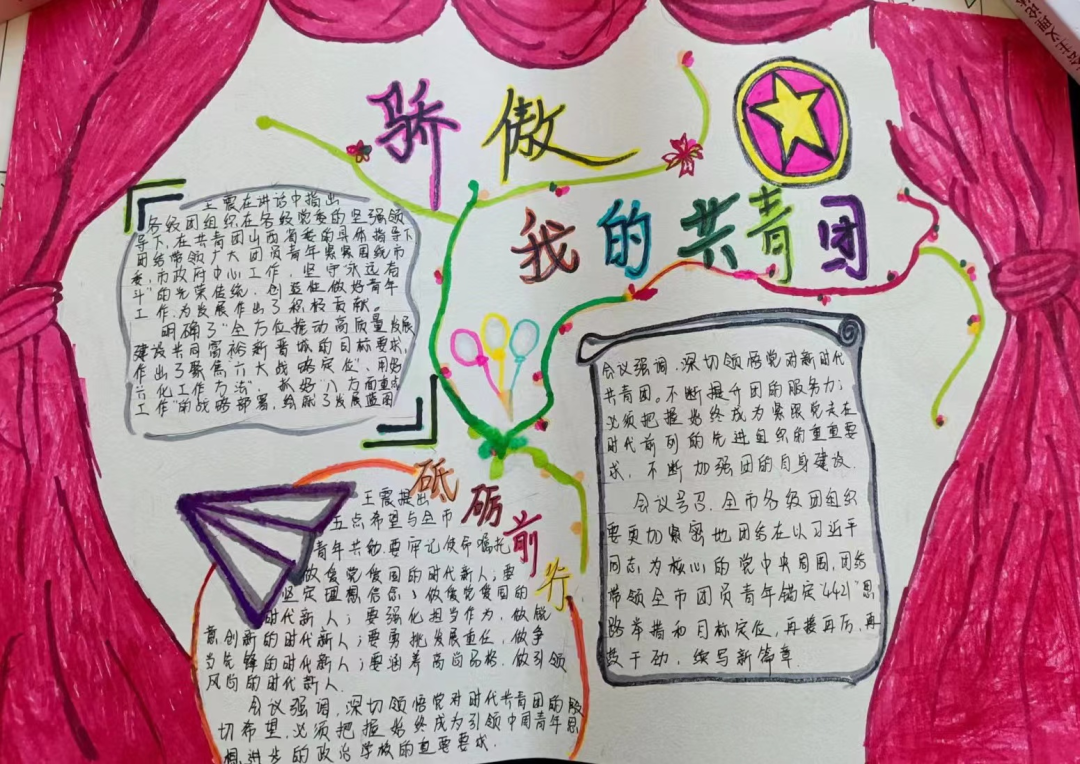 骄傲
我的共青团
王震在讲话中指出
各级团组织在各级党委的坚强领
导下,在共青团山西省委的具体指导下
团结带领广大团员青年紧紧围绕市
委、市政府中心工作,坚守"永远奋
斗"的光荣传统,创造性做好青年
工作,为发展作出了积极贡献。
明确了"全方位推动高质量发展
建设共同富裕新晋城的目标要求,
作出了聚焦"六大战略定位",用好"
六化工作方法",抓好"八方面重点
工作"的战略部署,绘就了发展蓝图
会议强调,深切领悟党对新时代
共青团。不断提升团的服务力;
必须把握始终成为紧跟党走在
时代前列的先进组织的重重要
求,不断加强团的自身建设.
会议号召.全市各级团组织
要更加紧密地团结在以习近平
同志为核心的党中央周围,团结
带领全市团员青年锚定"4421"思
路举措和目标定位,再接再厉,再
鼓干劲,续写新篇章.
砥砺前行
王震提出
五点希望与全市
青年共勉:要牢记使命嘱托
做爱党爱国的时代新人;要
坚定理想信念、做爱党爱国的
时代新人;要强化担当作为,做锐
意创新的时代新人;要勇挑发展重任,做争
当先锋的时代新人;要涵养高尚品格.做引领
风尚的时代新人.
会议强调,深切领悟党对时代共青团的殷
切希望,必须把握始终成为引领中国青年思
想进步的政治学校的重要要求.